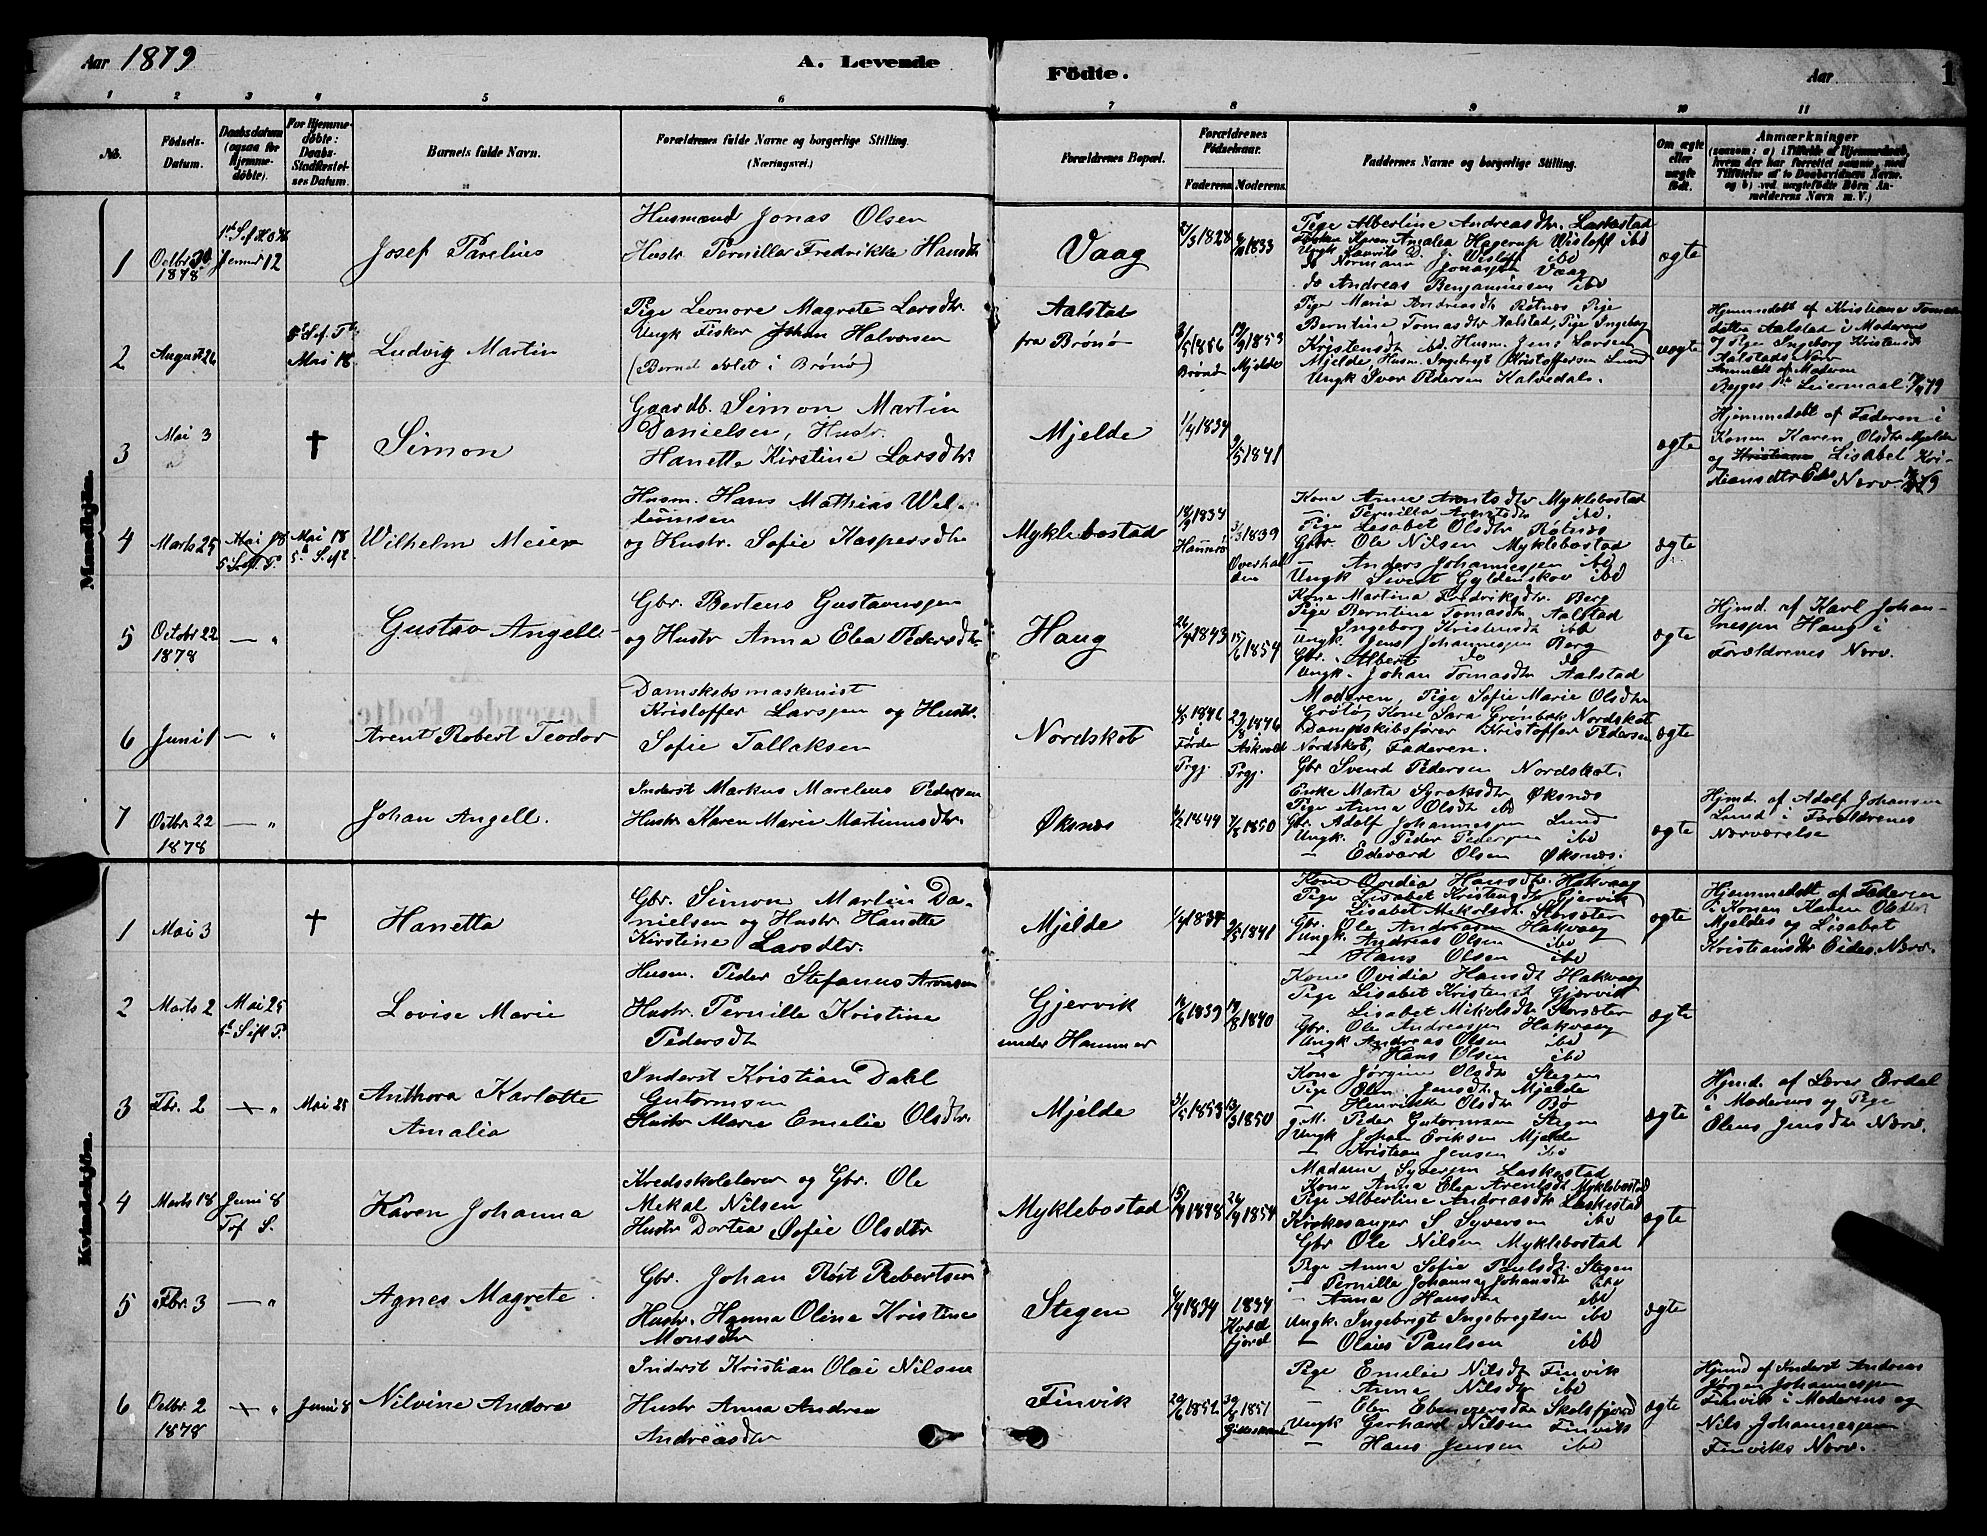 Aar 1879
A. Levende
Födte.
Aar
1
1 2 3 4 5 6 7 8 9 10 11
No.
Födsels-Datum.
Daabsdatum (ogsaa for Hjemme-döbte).
For Hjemme-döbte: Daabs-Stadfæstel-ses Datum.
Barnets fulde Navn.
Forældrenes fulde Navne og borgerlige Stilling.
(Næringsvei.)
Forældrenes Bopæl.
Forældrenes Födselsaar.
Faderens. Moderens.
Faddernes Navne og borgerlige Stilling.
Om ægte eller uægte født.
Anmærkninger
(saasom: a) i Tilfælde af Hjemmedaab, hvem der har forrettet samme, med Tilföielse af to Daabsvidners Navne. og b) ved uægtefödte Börn Anmelderens Navn m. V.)
Mandkjön.
1
Octbr 30
1878
Januar 12
Josef Parelius
Husmand Jonas Olsen
Hustr. Pernille Fredrikke Hansdtr
Vaag
1828
1833
Pige Albertine Andreasdtr. Laskestad
Frøken Karen Amalia Hagerup Wisløff ibd
Ungk Laurits D. J. Wisløff ibd
do Normann Jonassen Vaag
do Andreas Benjaminsen ibd
ægte
2
August 26
Mai 18
Ludvig Martin
Pige Leonore Magrete Larsdtr.
Ungk Fisker Johan Halvorsen
(Barnet avlet i Brønø)
Aalstad
fra Brønø
1856
Brønø
1853
Mjelde
Pige Maria Andreasdtr Rotnæs Pige
Berntine Tomasdtr Aalstad, Pige Ingeborg
Kristensdtr ibd. Husm. Jens Larsen
Mjelde, Husm. Ingebrigt Kristoffersen Lund
Ungk Iver Pedersen Kalvedal.
uægte
Hjemmedøbt af Kristiane Tomas
datter Aalstad i Moderens
og Pige Ingeborg Kristensdtr
Aalstads Nærv
Anmeldt af Moderen
Begges 1ste Leiermaal.
3
Mai 3
†
Simon
Gaardb. Simon Martin
Danielsen, Hustr.
Hanette Kirstine Larsdtr.
Mjelde
1/4 1834
9/5 1841
ægte
Hjemmedøbt af Faderen i
Konen Karen Olsdtr Mjelde
og Kristiane Lisabet Kri-
stiansdtr Eide Nærv
4
Marts 25
Mai 18
Mai 18
Wilhelm Meier
Husm. Hans Mathias Wil-
og Hustr. Sofie Kaspersdtr
Myklebostad
1834
Hammerø
1839
Overhal
den
Kone Anne Arntsdtr Myklebostad
— Pernilla Arntsdtr ibd.
Pige Lisabet Olsdtr Rotnæs
Gbr. Ole Nilsen Myklebostad
— Anders Johannessen ibd
Ungk Sivert Gyldenskov ibd
ægte
5
Octobr 22
1878
— "
Gustav Angell
Gbr. Bertens Gustavussen
og Hustr Anna Elea Pedersdtr
Haug
1843
1854
Kone Martina Fredriksdtr. Berg
Pige Berntine Tomasdtr Aalstad
— Ingeborg Kristensdtr ibd
Ungk. Jens Johannessen Berg
Gbr. Albert do do
Ungk. Johan Tomasdtr Aalstad
ægte
Hjmd. af Karl Johan-
nessen Haug i
Forældrenes Nærv.
6
Juni 1
— "
Arent Robert Teodor
Damskibsmaskinist
Kristoffer Larssen og Hustr.
Sofie Tollaksen
Nordskot
i
Førde
Prgj.
1846
i
Askvold
Prgj.
Moderen, Pige Sofie Marie Olsdtr
Grøtø, Kone Sara Grønbæk Nordskot
Dampskibsfører Kristoffer Pedersen
Nordskot, Faderen.
Gbr Svend Pedersen Nordskot.
ægte
7
Octbr. 22
1878
— "
Johan Angell.
Inderst Markus Marelius Pedersen
Hustr Karen Marie Martinusdtr.
Øksnæs
1849
1850
Enke Marta Syraksdtr Øksnæs
Pige Anna Olsdtr ibd
Gbr. Adolf Johannessen Lund
Ungk. Peder Pedersen ibd
— Edevard Olsen Øksnæs.
ægte
Hjmd. af Adolf Johansen
Lund i Forældrenes
Nærværelse
Kvindekjön.
1
Mai 3
†
Hanetta
Gbr. Simon Martin Da-
nielsen og Hustr. Hanette
Kirstine Larsdtr.
Mjelde
1/4 1834
9/5 1841
Kone Ovidia Hansdtr. Hakvaag
Pige Lisabet Kristensdtr Gjervik
— Lisabet Mikolsdtr Storsæter
Gbr. Ole Andreasen Hakvaag
Ungk. Andreas Olsen ibd
— Hans Olsen ibd
ægte
Hjemmedøbt af Faderen
i Konen Karen Olsdtr
Mjeldes og Lisabet
Kristiansdtr Eides Nærv.
2
Marts 2
Mai 25
Lovise Marie
Husm. Peder Stefanus Aronsen
Hustr. Pernille Kristine
Pedersdtr
Gjervik
under Hammer
1839
1840
Kone Ovidia Hansdtr Hakvaag
Pige Lisabet Kristensdtr Gjervik
— Lisabet Mikolsdtr Storsæter
Gbr. Ole Andreassen Hakvaag
Ungk Andreas Olsen ibd
— Hans Olsen ibd
ægte
3
Fbr. 2
"
Mai 25
Anthora Karlotte
Amalia
Inderst Kristian Dahl
Gutormsen
Hustr Marie Emelie Olsdtr.
Mjelde
1853
1850
Kone Jørgine Olsdtr Stegen
Pige Olen Jensdtr Mjelde
— Henrikke Olsdtr Bø
g.M. Peder Gutormsen Stegen
Ungk Johan Eriksen Mjelde
— Kristian Jensen ibd
ægte
Hjmd. af Lærer Erdal
i Moderens og Pige
Olens Jensdtr Nærv.
4
Marts 18
Juni 8
Tref S.
Karen Johanna
Kredsskolelærer og Gbr. Ole
Mekal Nilsen
Hustr Dortea Sofie Olsdtr
Myklebostad
1848
1854
Madame Syversen Laskestad
Kone Anna Elea Arentsdtr Myklebostad
Pige Albertine Andreasdtr Laskestad
Kirkesanger S Syversen ibd
Gbr Ole Nilsen Myklebostad
ægte
5
Fbr. 3
— "
Agnes Magrete
Gbr. Johan Røst Robertsen
Hustr. Hanna Olina Kristine
Monsdtr
Stegen
1834
1834
Kvæd
fjord
Pige Anna Sofie Paulsdtr. Stegen
— Pernille Johanna Johansdtr ibd
— Anna Hansdtr ibd
Ungk. Ingebrigt Ingebregtsen ibd
— Olaus Paulsen ibd
ægte
6
Octbr. 2
1878
"
Juni 8
Nilvine Andora
Inderst Kristian Olai Nilsen
Hustr Anna Andrea
Andreasdtr
Finvik
1852
1851
Gildeskaal
Pige Emelie Nilsdtr Finvik
— Anna Nilsdtr ibd
— Elen Ebenezersdtr Skotsfjord
Ungk Gerhard Nilsen Finvik
— Hans Jensen ibd
ægte
Hjmd af Inderst Andreas
Jørgen Johannessen
Finvik i Moderens og
Nils Johannessen
Finviks Nærv.